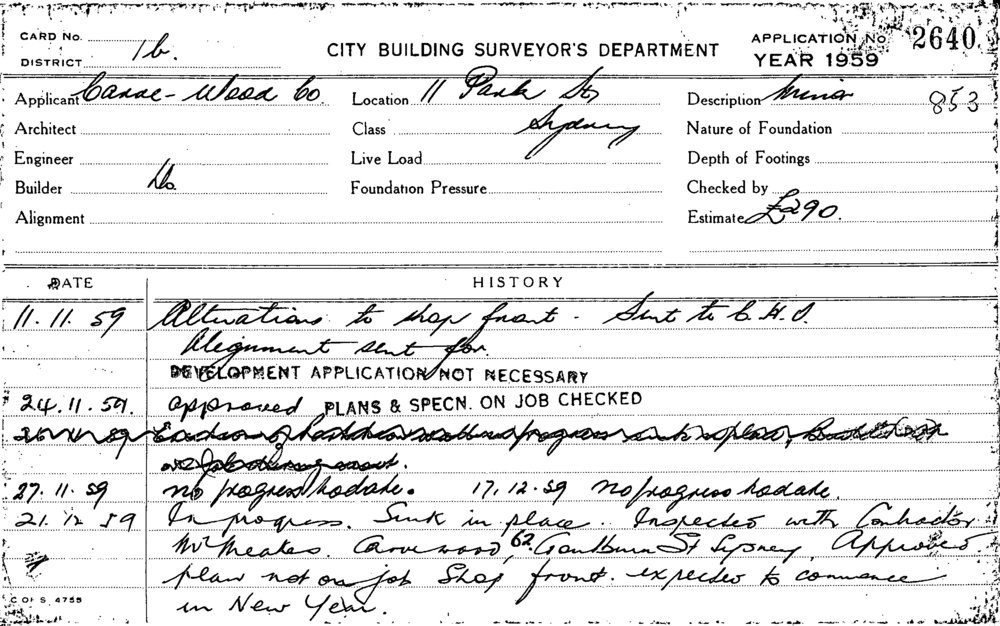 CARD No.
DISTRICT 1b.
CITY BUILDING SURVEYOR'S DEPARTMENT
APPLICATION No 2640
YEAR 1959
Applicant Carve-Wood Co.
Location 11 Park St, Sydney
Description Minor 853
Architect
Class
Nature of Foundation
Engineer
Live Load
Depth of Footings
Builder Do.
Foundation Pressure
Checked by
Alignment
Estimate £290.
DATE HISTORY
11.11.59 Alterations to shop front. Sent to C.H.I.
Alignment sent for.
DEVELOPMENT APPLICATION NOT NECESSARY
24.11.59. approved PLANS & SPECN. ON JOB CHECKED
27.11.59 no progress to date. 17.12.59 No progress to date.
21.12.59 In progress. Sink in place. Inspected with Contractor
Mr Meakes. Carvewood, 62 Goulburn St Sydney. Approved
plan not on job Shop front. expected to commence
in New Year.
C OF S. 4755